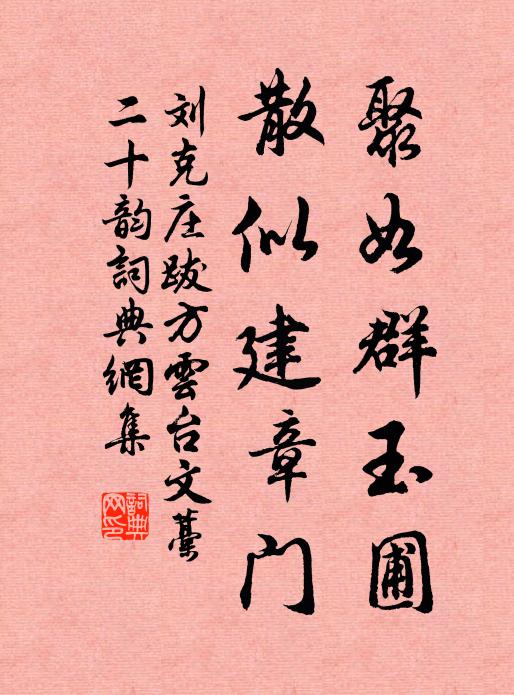 聚如群玉圃
散似建章门
刘克庄跋方雲台文藁
二十韵詞典網集
詞典网印